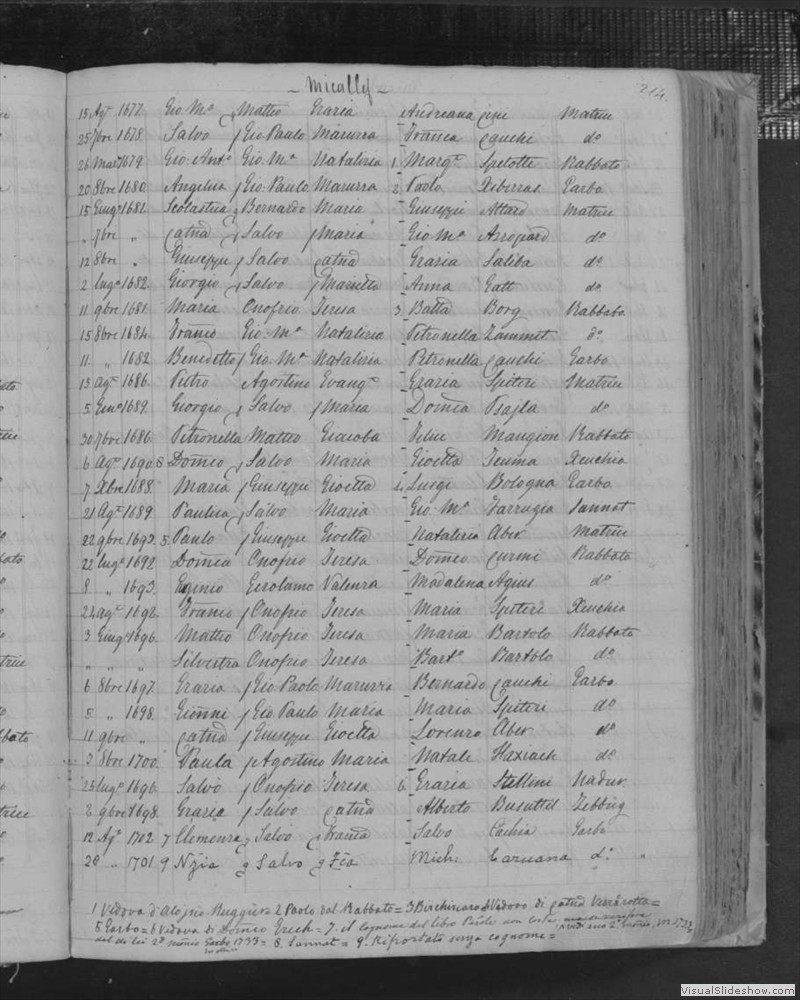 - Micallef -
214.
15 Agº 1677. Gio. Mª Matteo Grazia Andreana Cini Matrice
25 7bre 1678. Salvo Gio Paulo Maruzza Franca Cauchi dº
26 Mar 1679. Gio: Antº Gio: Mª Natalizia 1. Margª Spelotti Rabbato
20 8bre 1680. Angelica Gio: Paulo Maruzza 2 Paolo Xiberras Garbo
15 Giugº 1681. Scolastica Bernardo Maria Giuseppe Attard Matrice
„ 7bre „ Catnā Salvo Maria Gio Mª dº
12 8bre „ Giuseppe Salvo Catnā Grazia Saliba dº
2 lugº 1682. Giorgio Salvo Marietta Anna Gatt dº
11 9bre 1681. Maria Onofrio Teresa 3 Batta Borg Rabbato
15 8bre 1684. Franco Gio: Mª Natalizia Petronella Zammit dº
11 „ 1682. Benedetto Gio: Mª Natalizia Petronella Cauchi Garbo
13 agº 1686. Pietro Agostino Evangª Grazia Spiteri Matrice
5 Gen 1689. Giorgio Salvo Maria Domca Psajla dº
30 7bre 1686. Petronella Matteo Giacoba Felice Mangion Rabbato
6 Agº 1690. 8 Domco Salvo Maria Gioetta Xeuchia
7 Xbre 1688. Maria Giuseppe Gioetta 4 Luigi Bologna Garbo
21 Agº 1689. Paulica Salvo Maria Gio. Mª Farrugia Sannat
22 9bre 1693. 5 Paulo Giuseppe Gioetta Natalizia Aber Matrice
22 lugº 1692. Domca Onofrio Teresa Domco Curmi Rabbato
8 „ 1693. Egenio Girolamo Valenza Madalena Agius dº
24 agº 1692. Franco Onofrio Teresa Maria Spiteri Xeuchia
3 Giugº 1696. Matteo Onofrio Teresa Maria Bartolo Rabbato
„ „ „ Silvestra Onofrio Teresa Bartº Bartolo dº
6 8bre 1697. Grazia Gio: Paolo Maruzza Bernardo Cauchi Garbo
5 „ 1698. Gionni Gio: Paulo Maria Maria Spiteri dº
11 9bre „ Catnā Giuseppe Gioetta Lorenzo Aber dº
3 8bre 1700. Paula Agostino Maria Natale Haxiach dº
25 lugº 1696. Salvo Onofrio Teresa 6. Grazia Stellini Nadur
2 9bre 1698. Grazia Salvo Catnā Alberto Busuttil Zebbug
12 Agº 1702 7 Clemenza Salvo Franca Salvo Cachia Garbo
28 „ 1701 9 Nzia Salvo Fca Mich: Caruana dº „
1 Vedova d'Aloisio Ruggier = 2 Paolo dal Rabbato = 3 Birchircaro 4 Vedovo di Catnā =
5 Garbo = 6 Vedova di Domco Grech = 7. il cognome del libro Parle non costa
del di lei 2º Garbo 1733 = 8. Sannat = 9. Riportato senza cognome =
VisualSlideshow.com